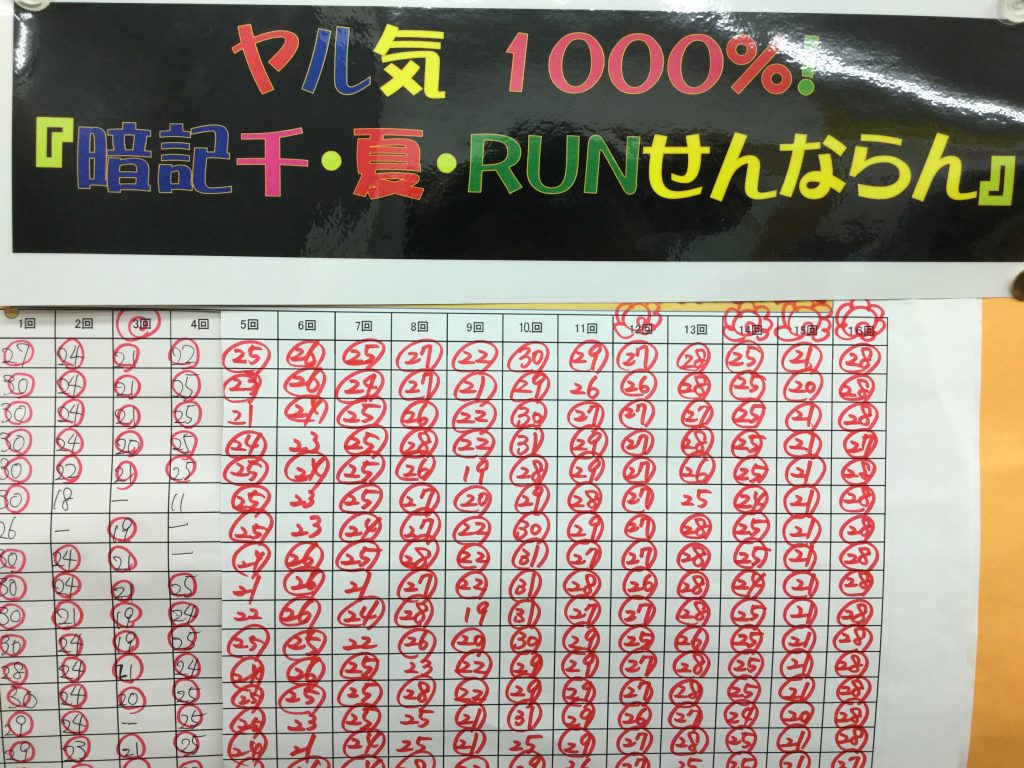 ヤル気 1000%!
『暗記千・夏・RUNせんならん』
1回 2回 3回 4回 5回 6回 7回 8回 9回 10回 11回 12回 13回 14回 15回 16回
29 24 21 22 25 26 25 27 22 30 29 27 28 25 21 28
30 24 21 25 23 26 24 27 21 29 26 26 28 25 20 28
30 24 21 25 21 24 25 26 22 30 27 27 27 25 21 28
30 24 20 25 24 23 25 28 22 31 29 27 28 25 21 27
30 22 21 25 25 24 25 26 19 28 29 27 26 25 21 28
30 18 - 11 25 23 25 27 20 29 28 27 25 24 21 28
26 - 19 - 25 23 24 27 22 30 29 27 28 25 21 28
30 24 20 - 24 26 25 28 22 31 27 27 28 25 21 28
30 24 21 25 21 26 21 27 22 31 28 26 28 24 21 28
30 21 19 24 22 26 24 28 19 31 27 27 28 25 21 28
30 24 19 25 25 25 22 26 20 30 29 25 26 25 21 28
28 24 21 24 28 26 25 23 22 29 29 27 28 25 21 28
30 24 20 25 25 25 25 28 22 29 29 27 28 25 21 28
29 24 - 25 25 23 25 25 21 31 29 26 27 24 20 28
29 23 21 25 24 21 24 25 21 25 29 27 28 25 21 28